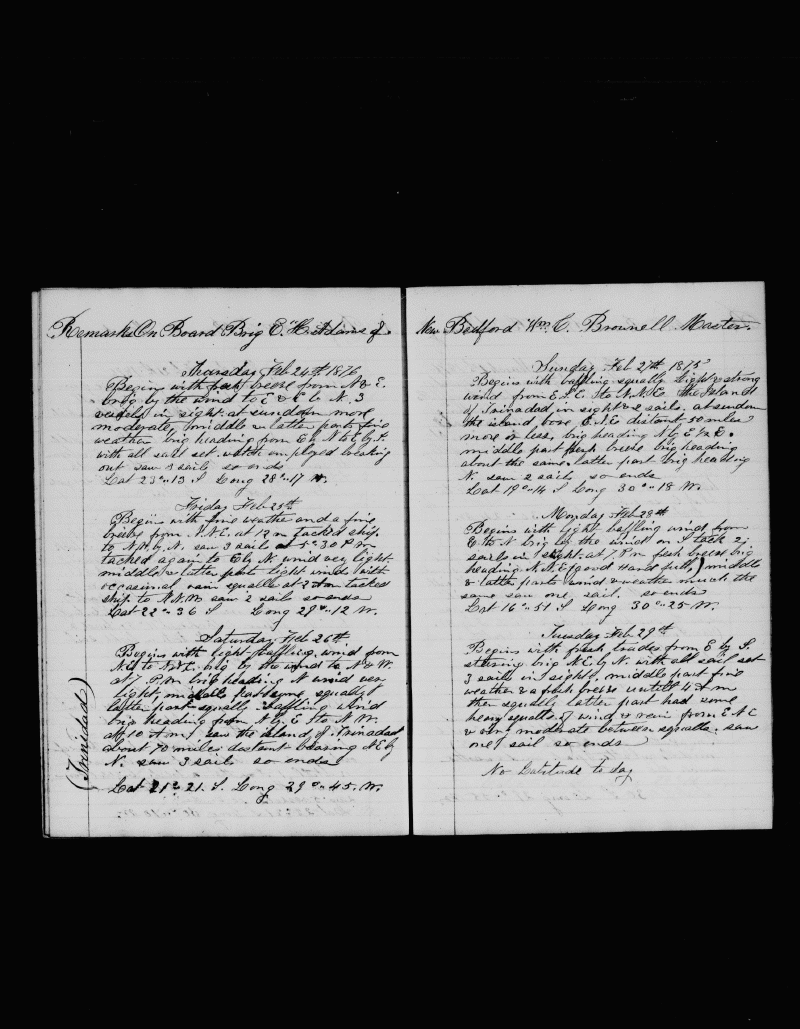 Remarks On Board Brig E. H. Adams of
Thursday Feb 24th 1876
Begins with fresh breeze from N & E.
brig by the wind to E & E by N. 3
vessels in sight. at sundown more
moderate, middle & latter parts fine
weather brig heading from E by N to E by S.
with all sail set. watch employed breaking
out saw 3 sails so ends
Lat 23°.13 S Long 28°.17 W.
Friday Feb 25th
Begins with fine weather and a fine
breeze from N.E. at 12 m tacked ship
to N by N. saw 3 sails at 5.30 P m
tacked again to E by N. wind very light.
middle & latter parts light winds with
occasional rain squalls at 2 A m tacked
ship to N.N.W saw 2 sails so ends
Lat 22°.36 S Long 29°.12 W.
Saturday Feb 26th
Begins with light baffling wind from
N.E to N.N.E. brig by the wind to N & W.
at 7 P.m brig heading N wind very
light, middle part some squally
latter part squally & baffling wind
brig heading from N by E to N.W.
at 10 A m saw the island of Trinadad
about 70 miles distant bearing N.E by
N. saw 3 sails so ends
(Trinidad)
Lat 21° 21. S. Long 29°.45. W.
New Bedford Wm. C. Brownell Master.
Sunday Feb 27th 1875
Begins with baffling squally light & strong
wind from E.S.E. to N.N.E. the Island
of Trinadad in sight & 2 sails. at sundown
the island bore E.N.E distant 50 miles
more or less, brig heading N by E ½ E.
middle part fresh breeze brig heading
about the same. latter part brig heading
N. saw 2 sails so ends
Lat 19°.14 S Long 30°.18 W.
Monday Feb 28th
Begins with light baffling wind from
E to N brig by the wind on S tack 2
sails in sight. at 7 P.m fresh breeze brig
heading N.N.E (good & full) middle
& latter parts wind & weather much the
same saw one sail. so ends
Lat 16°.51 S Long 30°.25 W.
Tuesday Feb 29th
Begins with fresh trades from E by S.
steering brig N.E. by N. with all sail set
3 sails in sight, middle part fine
weather & a fresh breeze untill 4 A m
then squally latter part had some
heavy squalls of wind & rain from E N E
& very moderate between squalls. saw
one sail so ends
No Latitude to day